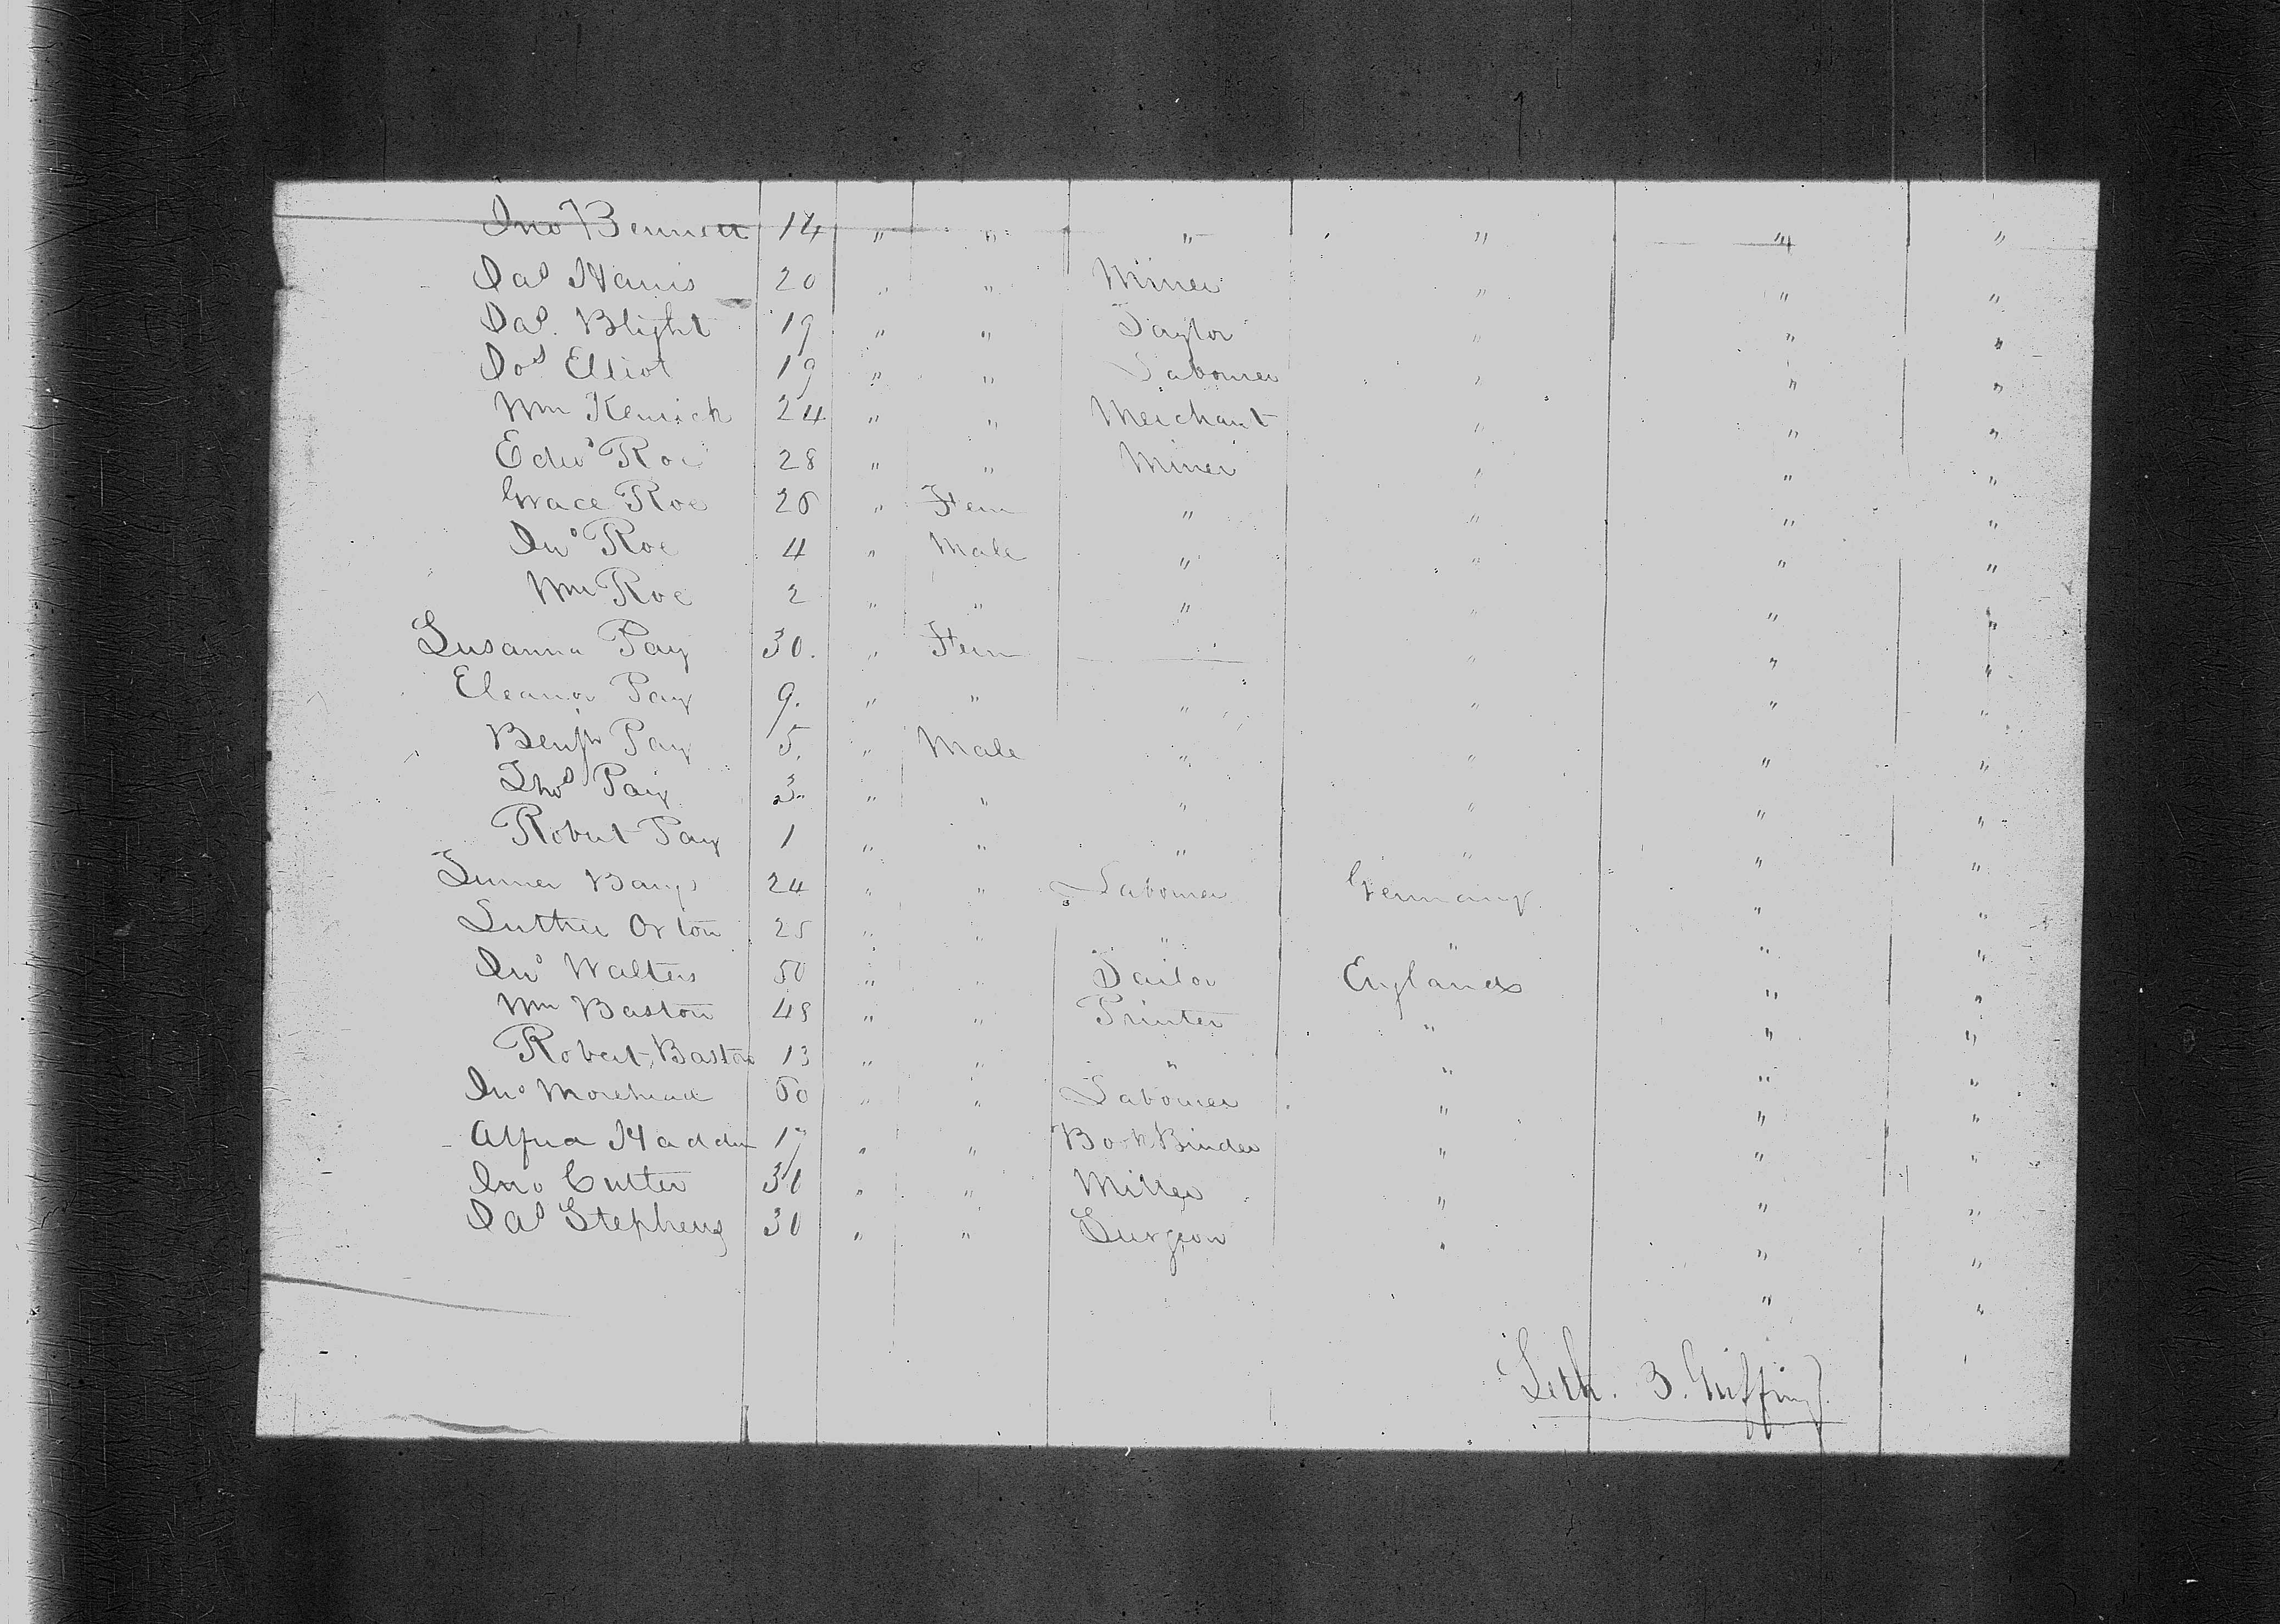 Jno Bennett 14 " " " " " "
Jas Harris 20 " " Miner " " "
Jas. Blight 19 " " Taylor " " "
Jos Elliot 19 " " Labourer " " "
Wm Kenrick 24 " " Merchant " " "
Edwd Roe 28 " " Miner " " "
Grace Roe 26 " Fem " " " "
Jno Roe 4 " Male " " " "
Wm Roe 2 " " " " " "
Susanna Pay 30. " Fem — " " "
Eleanor Pay 9. " " " " " "
Benjn Pay 5. " Male " " " "
Thos Pay 3. " " " " " "
Robert Pay 1 " " " " " "
24 " " Labourer Germany " "
Luther Orton 25 " " " " " "
Jno Walters 50 " " Tailor England " "
Wm Baston 48 " " Printer " " "
Robert Baston 13 " " " " " "
Jno Morehead 60 " " Labourer " " "
Haddin 17 " " Book Binder " " "
Jno Cutter 30 " " Miller " " "
Jas Stephens 30 " " Surgeon " " "
" "
Seth. B. Griffing